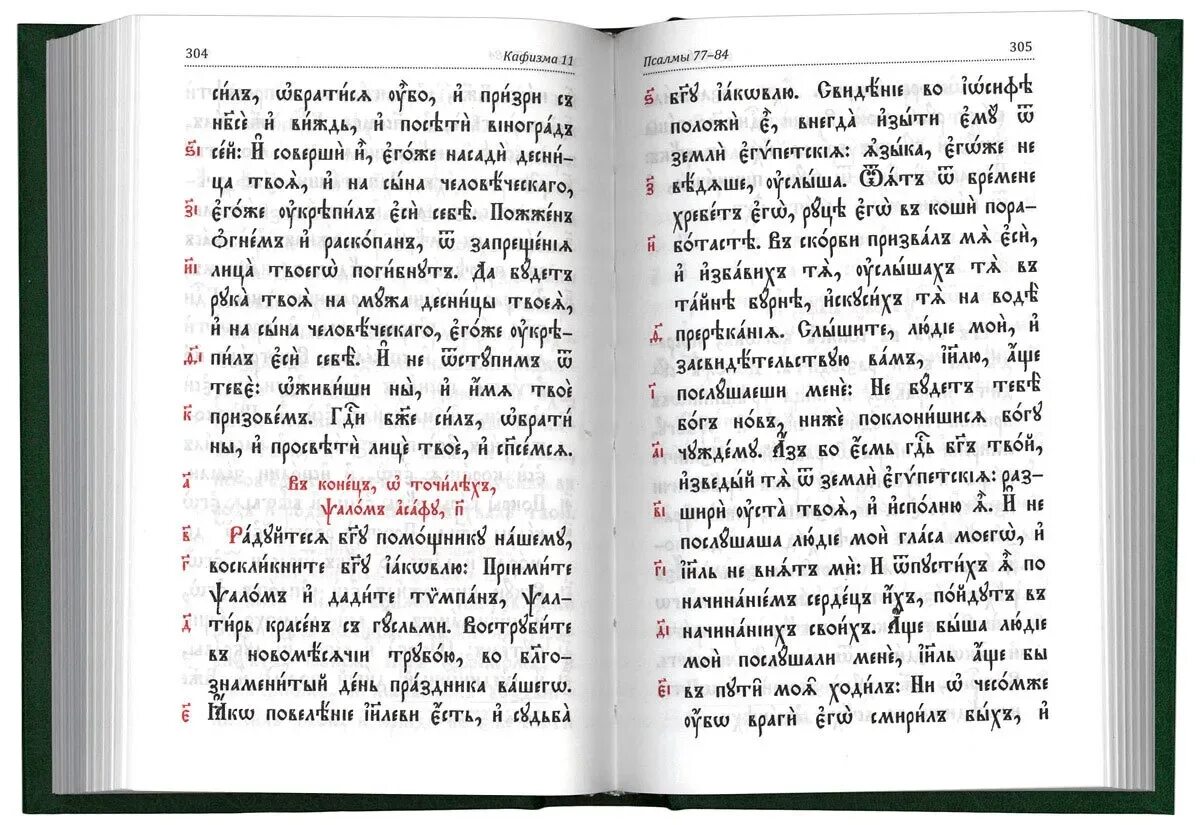 304
Кафизма 11
си́лъ, ѡ҆брати́сѧ ᲂу҆̀бо, и҆ при́зри съ
нб҃сѐ и҆ ви́ждь, и҆ посѣтѝ вїногра́дъ
з҃і се́й: И҆ совершѝ и҆̀, є҆го́же насадѝ десни́-
ца твоѧ̀, и҆ на сы́на человѣ́ческаго,
є҆го́же ᲂу҆крѣпи́лъ є҆сѝ себѣ̀. Пожже́нъ
ѻ҆гне́мъ и҆ раско́панъ, ѿ запреще́нїѧ
и҃і лица̀ твоегѡ̀ поги́бнутъ. Да бу́детъ
рука̀ твоѧ̀ на мꙋ́жа десни́цы твоеѧ̀,
и҆ на сы́на человѣ́ческаго, є҆го́же ᲂу҆крѣ-
д҃і пи́лъ є҆сѝ себѣ̀. И҆ не ѿстꙋ́пимъ ѿ
тебє̀: ѡ҆живи́ши ны̀, и҆ и҆́мѧ твоѐ
к҃ призове́мъ. Гдⷭ҇и бж҃е си́лъ, ѡ҆братѝ
ны̀, и҆ просвѣтѝ лицѐ твоѐ, и҆ спⷭ҇е́мсѧ.
а҃ Въ коне́цъ, ѡ҆ точи́лѣхъ,
ѱало́мъ а҆са́фꙋ, п҃
в҃ Ра́дꙋйтесѧ бг҃ꙋ помо́щникꙋ на́шемꙋ,
г҃ воскли́кните бг҃ꙋ і҆а́кѡвлю: Прїими́те
ѱало́мъ и҆ дади́те тѷмпа́нъ, ѱал-
д҃ ти́рь кра́сенъ съ гꙋ́сльми. Вострꙋби́те
въ новомⷭ҇ѧчїи трꙋбо́ю, во бл҃го-
знамени́тый де́нь пра́здника ва́шегѡ.
є҃ Ꙗ҆́кѡ повелѣ́нїе і҆и҃леви є҆́сть, и҆ сꙋдьба̀
Псалмы 77–84
305
ѕ҃ бг҃ꙋ і҆а́кѡвлю. Свидѣ́нїе во і҆ѡ́сифѣ
положѝ є҆̀, внегда̀ и҆зы́ти є҆мꙋ̀ ѿ
землѝ є҆гѵ́петскїѧ: ꙗ҆зы́ка, є҆гѡ́же не
з҃ вѣ́дѧше, ᲂу҆слы́ша. Ѿѧ́тъ ѿ бре́мене
хребе́тъ є҆гѡ̀, рꙋ́цѣ є҆гѡ̀ въ ко́ши пора-
и҃ бо́тастѣ. Въ ско́рби призва́лъ мѧ̀ є҆сѝ,
и҆ и҆зба́вихъ тѧ̀, ᲂу҆слы́шахъ тѧ̀ въ
та́йнѣ бꙋ́рнѣ, и҆скꙋси́хъ тѧ̀ на водѣ̀
пререка́нїѧ. Слы́шите, лю́дїе моѝ, и҆
засвидѣ́тельствꙋю ва́мъ, і҆и҃лю, а҆́ще
і҃ послꙋ́шаеши менє̀: Не бꙋ́детъ тебѣ̀
бо́гъ но́въ, нижѐ поклони́шисѧ бо́гꙋ
а҃і чꙋжде́мꙋ. А҆́зъ бо є҆́смь гдⷭ҇ь бг҃ъ тво́й,
и҆зведы́й тѧ̀ ѿ землѝ є҆гѵ́петскїѧ: раз-
в҃і ширѝ ᲂу҆ста̀ твоѧ̀, и҆ и҆спо́лню ѧ҆̀. И҆ не
послꙋ́шаша лю́дїе моѝ гла́са моегѡ̀, и҆
г҃і і҆и҃ль не внѧ́тъ мѝ: И҆ ѿпꙋсти́хъ ѧ҆̀ по
начина́нїємъ серде́цъ и҆́хъ, по́йдꙋтъ въ
д҃і начина́нїихъ свои́хъ. А҆́ще бы́ша лю́дїе
моѝ послꙋ́шали менє̀, і҆и҃ль а҆́ще бы
є҃і въ пꙋти̑ моѧ̑ ходи́лъ: Ни ѡ҆ чесо́мже
ᲂу҆́бѡ врагѝ є҆гѡ̀ смири́лъ бы́хъ, и҆